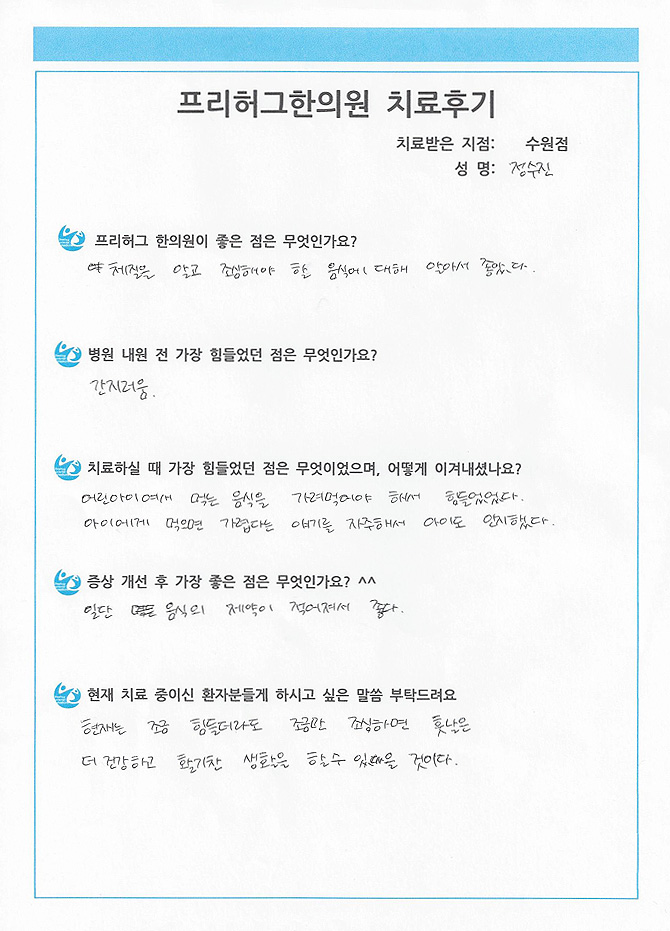 프리허그한의원 치료후기
치료받은 지점: 수원점
성 명: 정수진
프리허그 한의원이 좋은 점은 무엇인가요?
체질을 알고 조심해야 할 음식에 대해 알아서 좋았다.
병원 내원 전 가장 힘들었던 점은 무엇인가요?
간지러움.
치료하실 때 가장 힘들었던 점은 무엇이었으며, 어떻게 이겨내셨나요?
어린아이여서 먹는 음식을 가려먹어야 해서 힘들었었다.
아이에게 먹으면 가렵다는 얘기를 자주해서 아이도 인지했다.
증상 개선 후 가장 좋은 점은 무엇인가요? ^^
일단 음식의 제약이 적어져서 좋다.
현재 치료 중이신 환자분들게 하시고 싶은 말씀 부탁드려요
현재는 조금 힘들더라도 조금만 조심하면 훗날은
더 건강하고 활기찬 생활을 할수 있을 것이다.